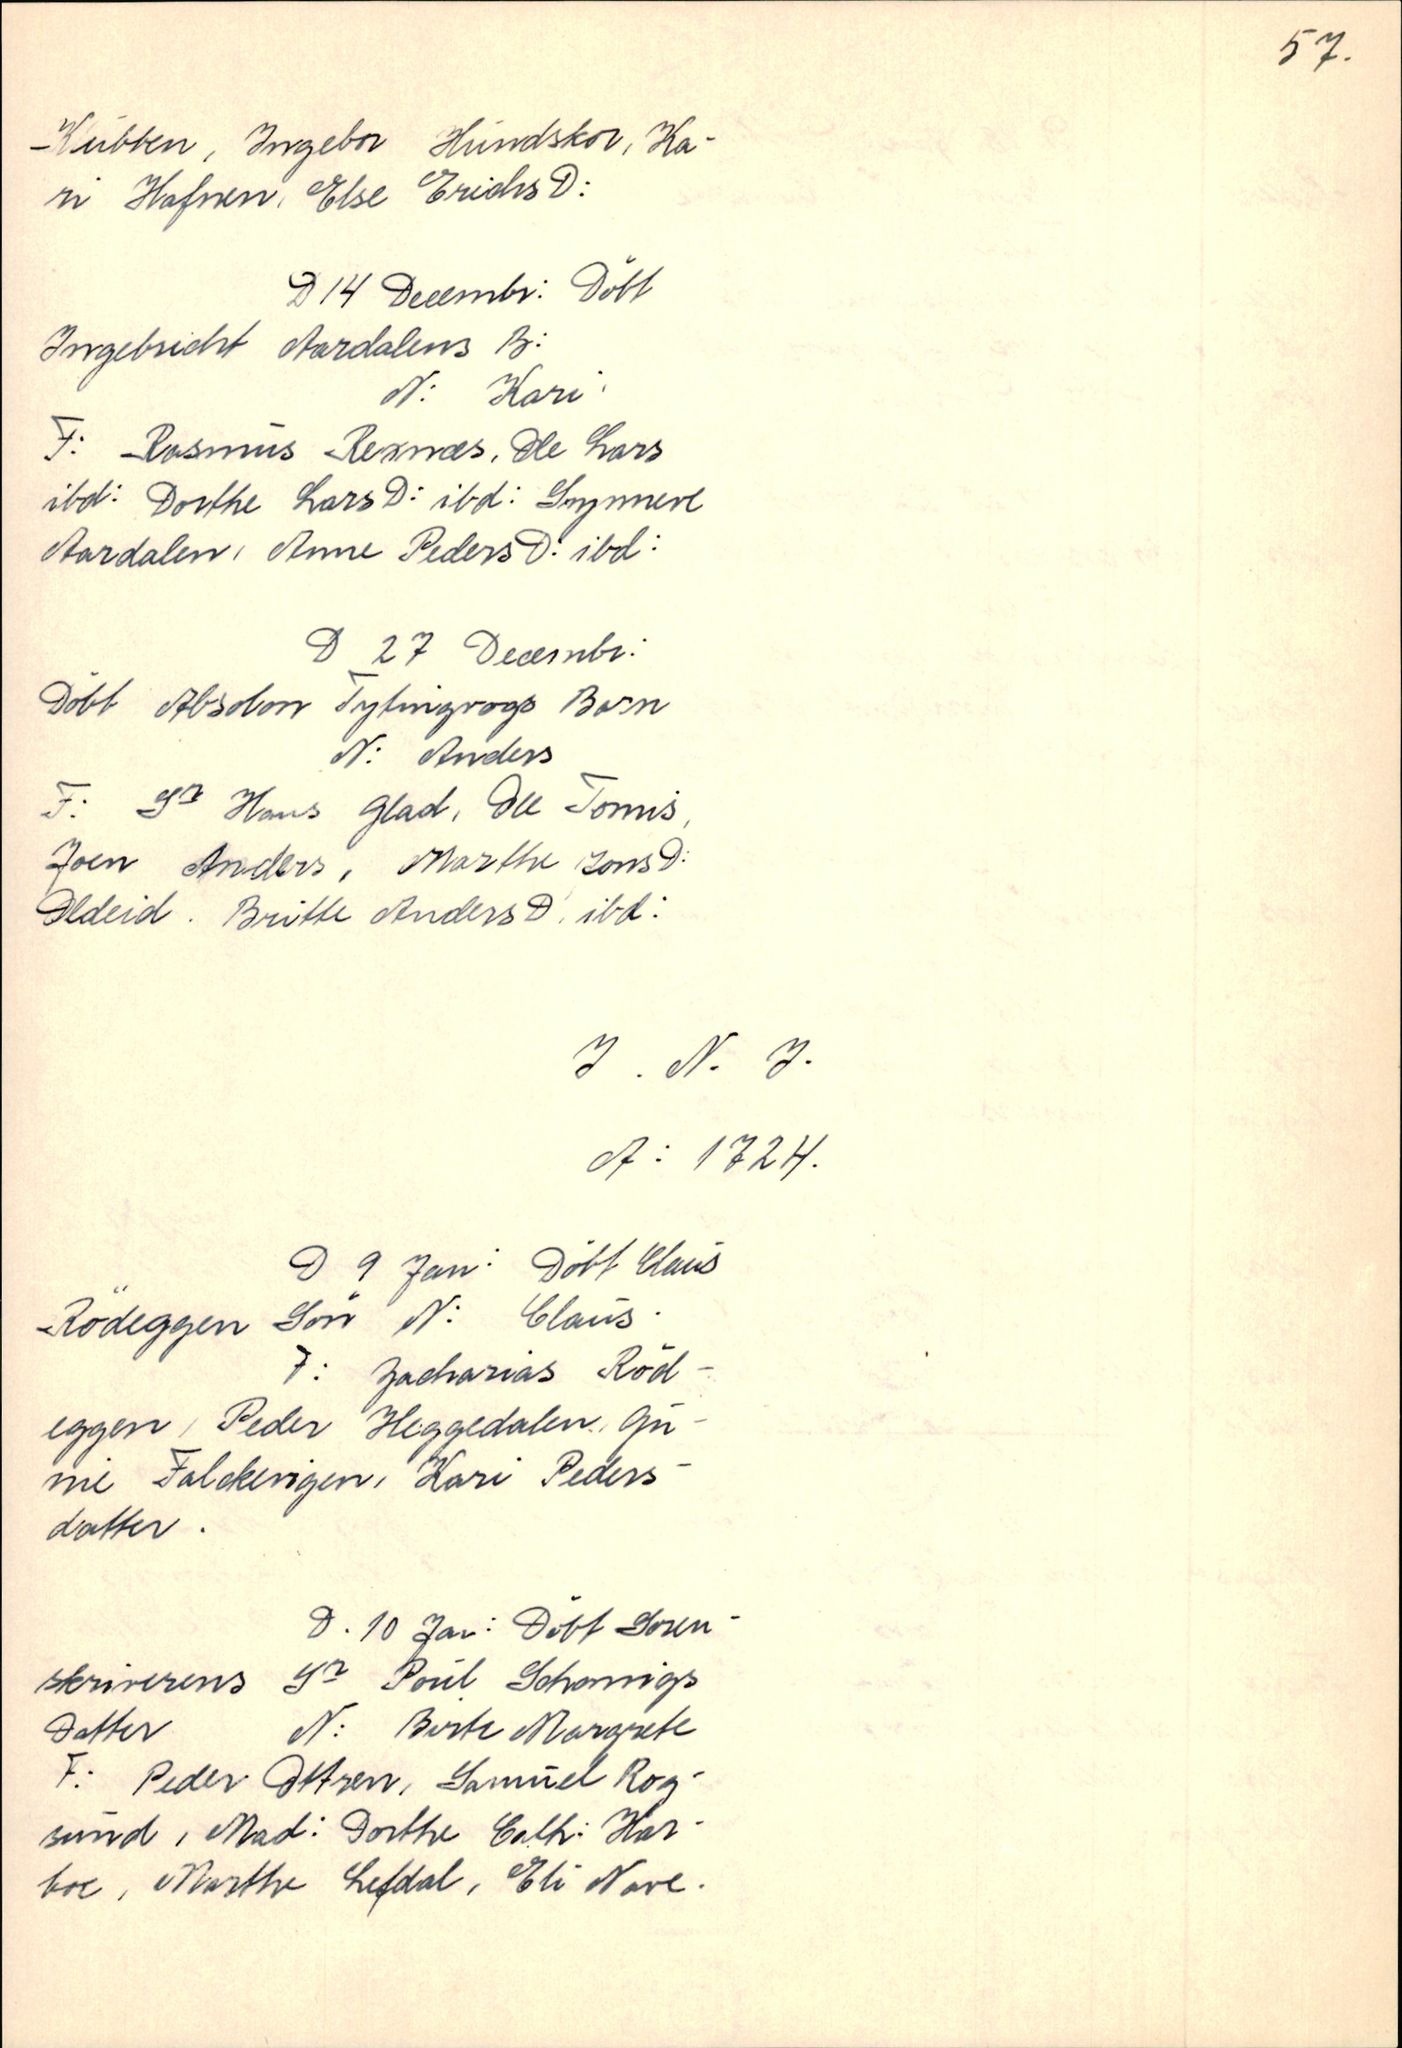 57.
Kubben, Ingebor Hundskor, Ka-
ri Hafnen, Else Erichs D:
D 14 Decembr: Döbt
Ingebricht Aardalens B:
N: Kari
F: Rasmus Rexnæs, Ole Lars
ibd: Dorthe Lars D: ibd: Synneve
Aardalen, Anne Peders D: ibd:
D 27 Decembr:
Döbt Absolon Tytingvogs Barn
N: Anders
F: Sr Hans Glad, Ole Tomis,
Joen Anders, Marthe Jons D:
Oldeid. Britte Anders D. ibd:
J. N. J.
A: 1724.
D 9 Jan: Döbt Claus
Rödeggen Sön N: Claus.
F: Zacharias Röd-
eggen, Peder Heggedalen, Gu-
nie Falckevigen, Kari Peders-
datter.
D. 10 Jan: Döbt Soren-
skriverens Sr Poul Schonnigs
Datter N: Birte Margrete
F: Peder Ottsen, Samuel Rog-
sund, Mad: Dorthe Cath: Har-
boe, Marthe Lefdal, Eli Nave.